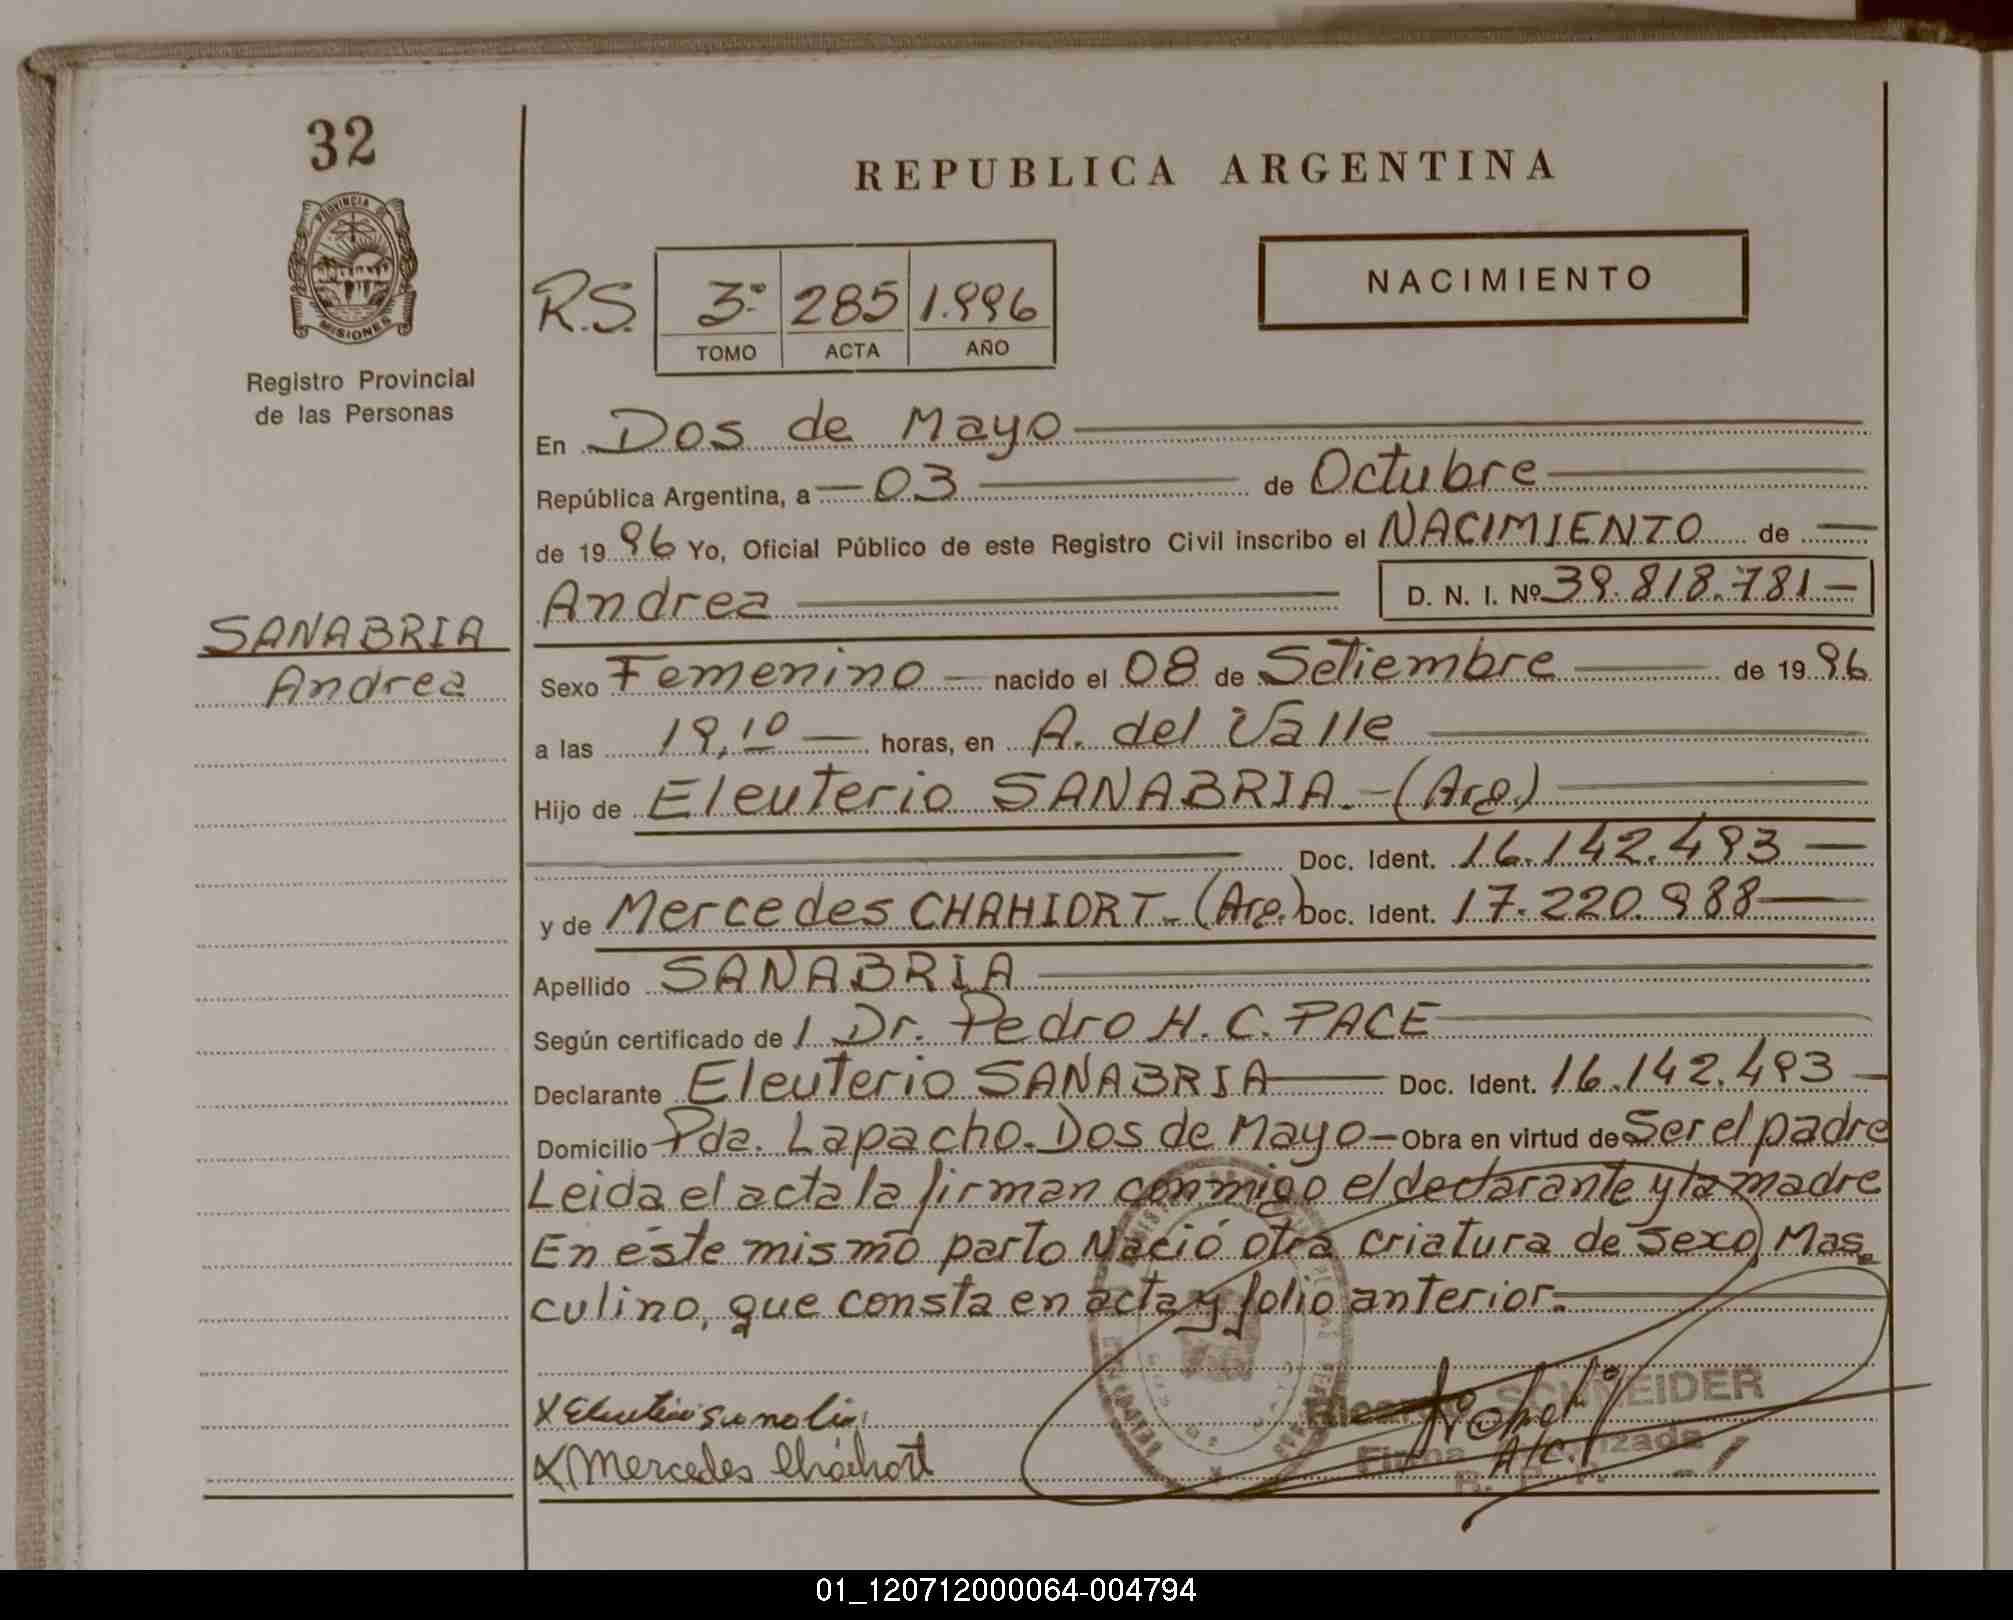 32
PROVINCIA DE
MISIONES
Registro Provincial
de las Personas
SANABRIA
Andrea
REPUBLICA ARGENTINA
R.S. 3º 285 1.996
TOMO ACTA AÑO
NACIMIENTO
En Dos de Mayo
República Argentina, a 03 de Octubre
de 1996 Yo, Oficial Público de este Registro Civil inscribo el NACIMIENTO de
Andrea D. N. I. Nº 39.818.781
Sexo Femenino nacido el 08 de Setiembre de 1996
a las 19,10 horas, en A. del Valle
Hijo de Eleuterio SANABRIA.-(Arg.)
Doc. Ident. 16.142.493
y de Mercedes CHAHIORT.-(Arg.) Doc. Ident. 17.220.988
Apellido SANABRIA
Según certificado de / Dr. Pedro H. C. PACE
Declarante Eleuterio SANABRIA Doc. Ident. 16.142.493
Domicilio Pda. Lapacho-Dos de Mayo- Obra en virtud de Ser el padre
Leida el acta la firman conmigo el declarante y la madre
En éste mismo parto Nació otra criatura de sexo Mas-
culino, que consta en acta y folio anterior.
X Eleuterio
X Mercedes Chahiort
Ricardo SCHNEIDER
Firma Autorizada
A/C.
01_120712000064-004794